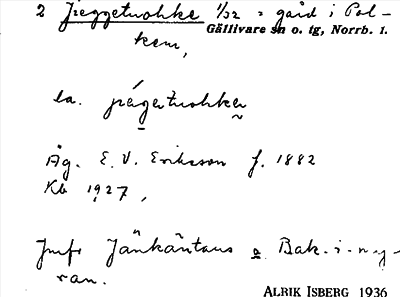 2 Jieggetuohke 1/32 = gård i Pol-
Gällivare sn o. tg, Norrb. l.
kem,
la. 
Äg. E. V. Eriksson f. 1882
Kb 1927,
Jmfr Jänkäntaus o. Bak-i-my-
ran.
ALRIK ISBERG 1936